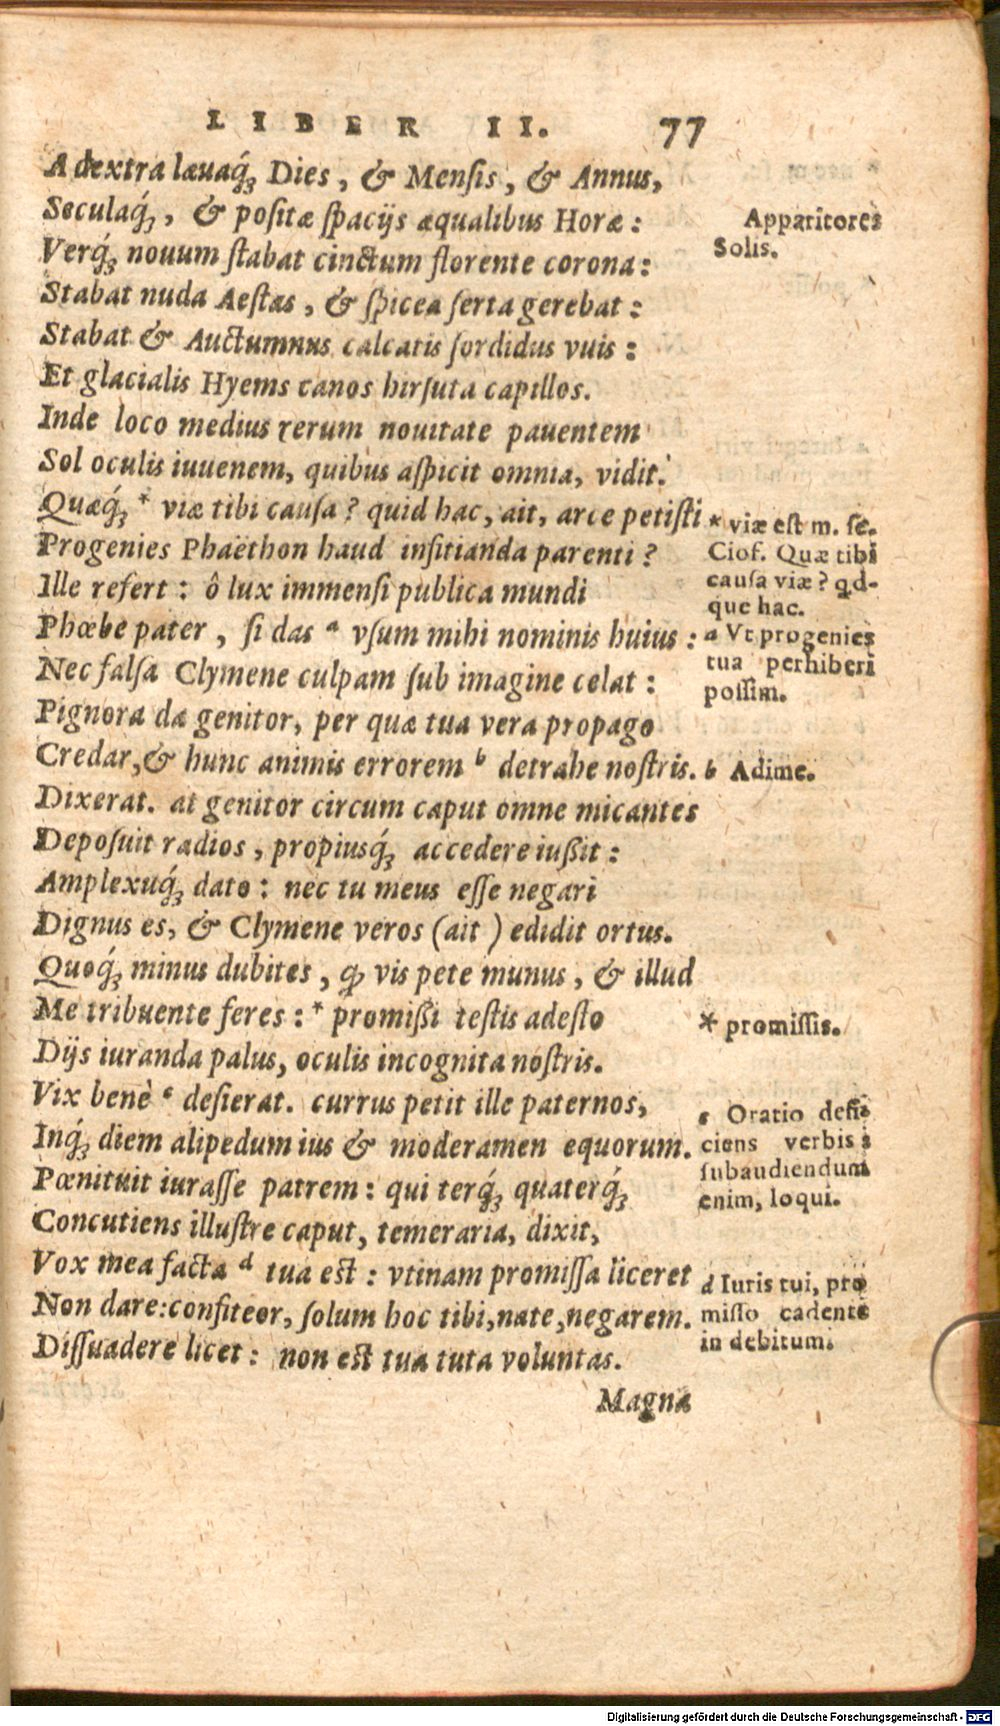 LIBER II. 77
A dextra læuaq́; Dies, & Menſis, & Annus,
Seculaq́;, & poſitæ ſpacijs æqualibus Horæ:
Verq́; nouum ſtabat cinctum florente corona:
Stabat nuda Aeſtas, & ſpicea ſerta gerebat:
Stabat & Auctumnus calcatis ſordidus vuis:
Et glacialis Hyems canos hirſuta capillos.
Inde loco medius rerum nouitate pauentem
Sol oculis iuuenem, quibus aſpicit omnia, vidit.
Quæq́; * viæ tibi cauſa? quid hac, ait, arce petiſti
Progenies Phaëthon haud inſitianda parenti?
Ille refert: ô lux immenſi publica mundi
Phœbe pater, ſi das a vſum mihi nominis huius:
Nec falſa Clymene culpam ſub imagine celat:
Pignora da genitor, per quæ tua vera propago
Credar, & hunc animis errorem b detrahe noſtris.
Dixerat. at genitor circum caput omne micantes
Depoſuit radios, propiusq́; accedere iußit:
Amplexuq́; dato: nec tu meus eſſe negari
Dignus es, & Clymene veros (ait) edidit ortus.
Quoq́; minus dubites, ꝙ vis pete munus, & illud
Me tribuente feres: * promißi teſtis adeſto
Dijs iuranda palus, oculis incognita noſtris.
Vix benè c deſierat. currus petit ille paternos,
Inq́; diem alipedum ius & moderamen equorum.
Pœnituit iuraſſe patrem: qui terq́; quaterq́;
Concutiens illuſtre caput, temeraria, dixit,
Vox mea facta d tua eſt: vtinam promiſſa liceret
Non dare: confiteor, ſolum hoc tibi, nate, negarem.
Diſſuadere licet: non eſt tua tuta voluntas.
Magna
Apparitores
Solis.
* viæ eſt m. ſe.
Cioſ. Quæ tibi
cauſa viæ? qd-
que hac.
a Vt progenies
tua perhiberi
poſſim.
b Adime.
* promiſſis.
c Oratio defi-
ciens verbis:
ſubaudiendum
enim, loqui.
d Iuris tui, pro
miſſo cadente
in debitum.
Digitalisierung gefördert durch die Deutsche Forschungsgemeinschaft - DFG